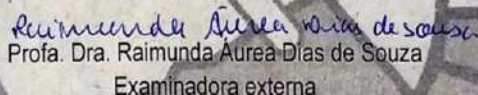 Raimunda Áurea Dias de Sousa
Profa. Dra. Raimunda Áurea Dias de Souza
Examinadora externa